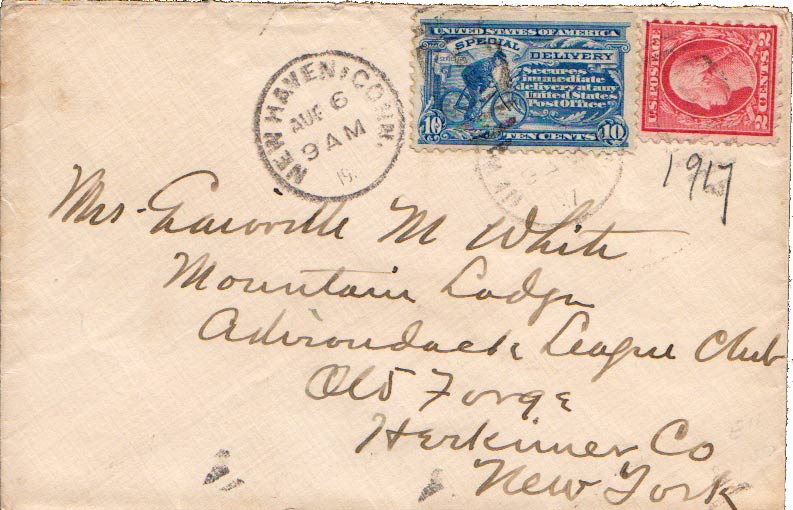 NEW HAVEN, CONN.
AUG 6
9 AM
19
UNITED STATES OF AMERICA
SPECIAL DELIVERY
Secures
immediate
delivery at any
United States
Post Office
10 TEN CENTS 10
U.S. POSTAGE
2 CENTS 2
1917
Mrs. M White
Mountain Lodge
Adirondack League Club
Old Forge
Herkimer Co
New York